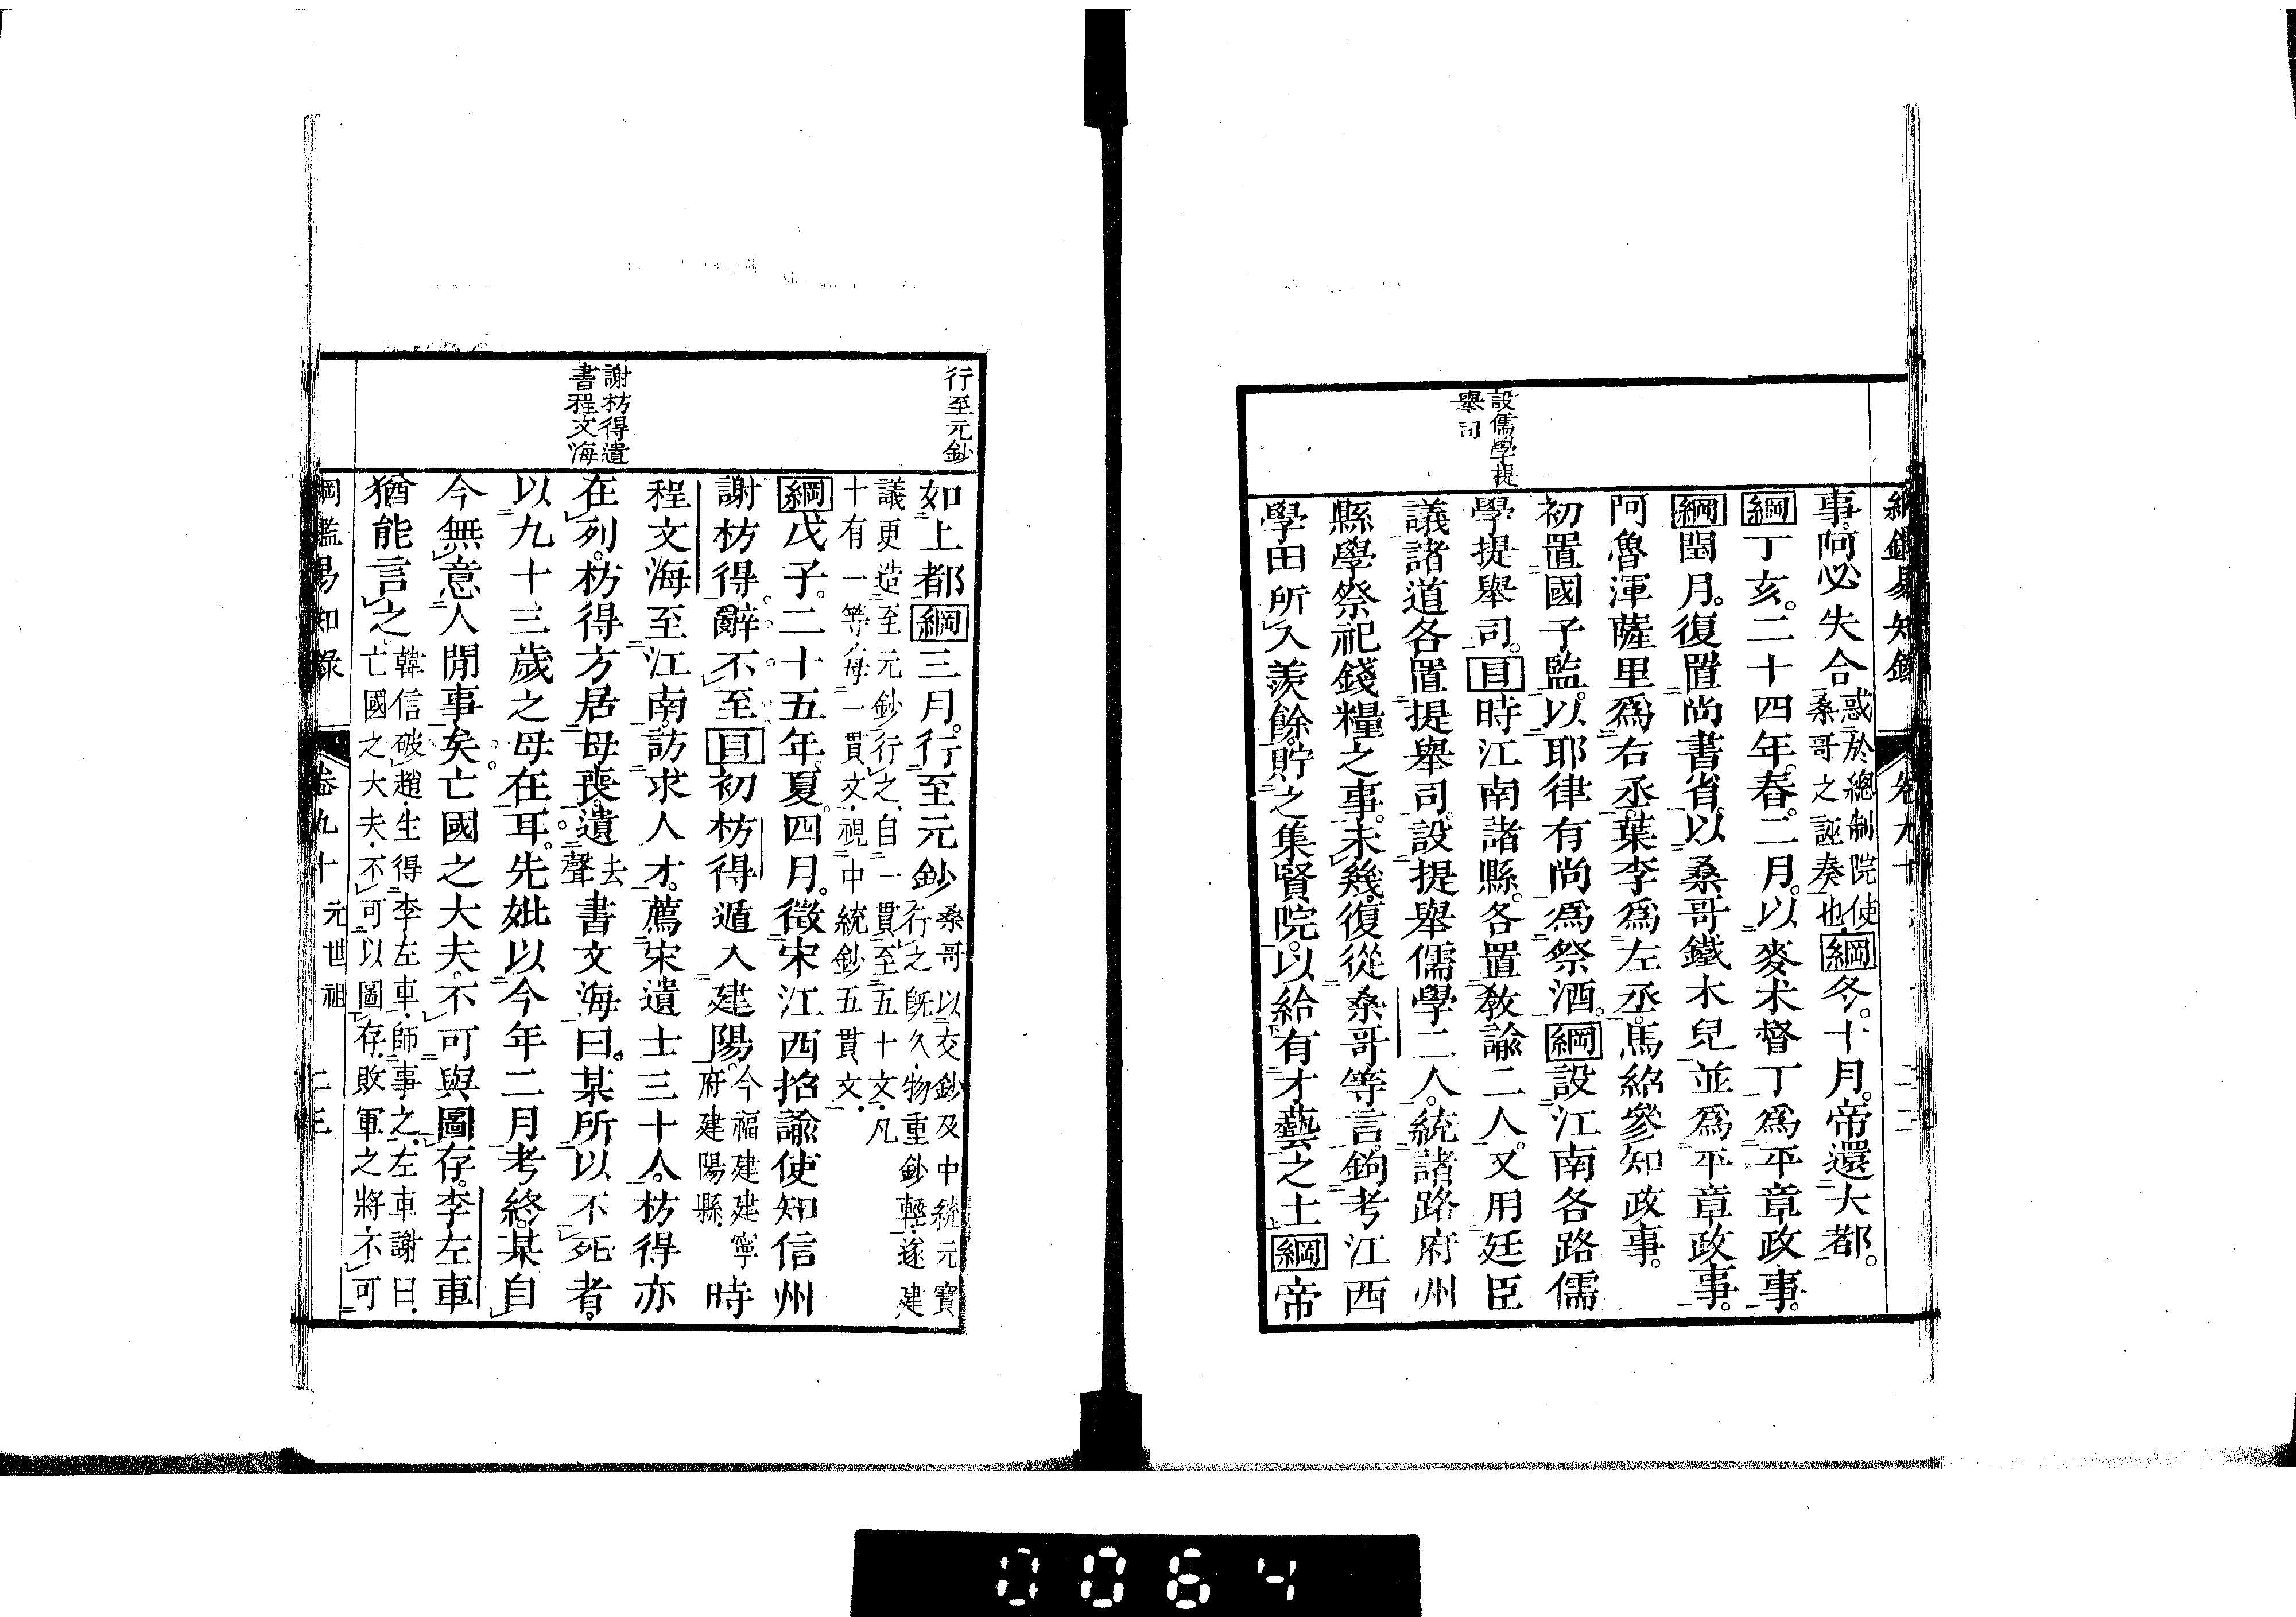 綱鑑易知錄 卷九十 二二
事。阿必失合惑於總制院使桑哥之誣奏也綱冬。十月。帝還大都。
綱丁亥。二十四年。春。二月。以麥朮督丁爲平章政事。
綱閏月。復置尚書省。以桑哥鐵木兒並爲平章政事。
阿魯渾薩里爲右丞。葉李爲左丞。馬紹參知政事。
初置國子監。以耶律有尚爲祭酒。綱設江南各路儒
設儒學提舉司
學提舉司。目時江南諸縣。各置教諭二人。又用廷臣
議諸道各置提舉司。設提舉儒學二人。統諸路府州
縣學祭祀錢糧之事。未幾。復從桑哥等言。鉤考江西
學田所入羨餘。貯之集賢院。以給有才藝之士綱帝
行至元鈔
如上都綱三月。行至元鈔桑哥以交鈔及中統元寶行之旣久、物重鈔輕、遂建
議更造至元鈔行之、自一貫至五十文、凡十有一等、每一貫文、視中統鈔五貫文、
綱戊子。二十五年。夏。四月。徵宋江西招諭使知信州
謝枋得。辭不至目初枋得遁入建陽。今福建建寧府建陽縣、時
程文海至江南。訪求人才。薦宋遺士三十人。枋得亦
謝枋得遺書程文海
在列。枋得方居母喪。遺去聲書文海曰。某所以不死者。
以九十三歲之母在耳。先妣以今年二月考終。某自
今無意人閒事矣。亡國之大夫。不可與圖存。李左車
猶能言之韓信破趙、生得李左車、師事之、左車謝曰、亡國之大夫、不可以圖存、敗軍之將、不可
綱鑑易知錄 卷九十 元世祖 二三
0064